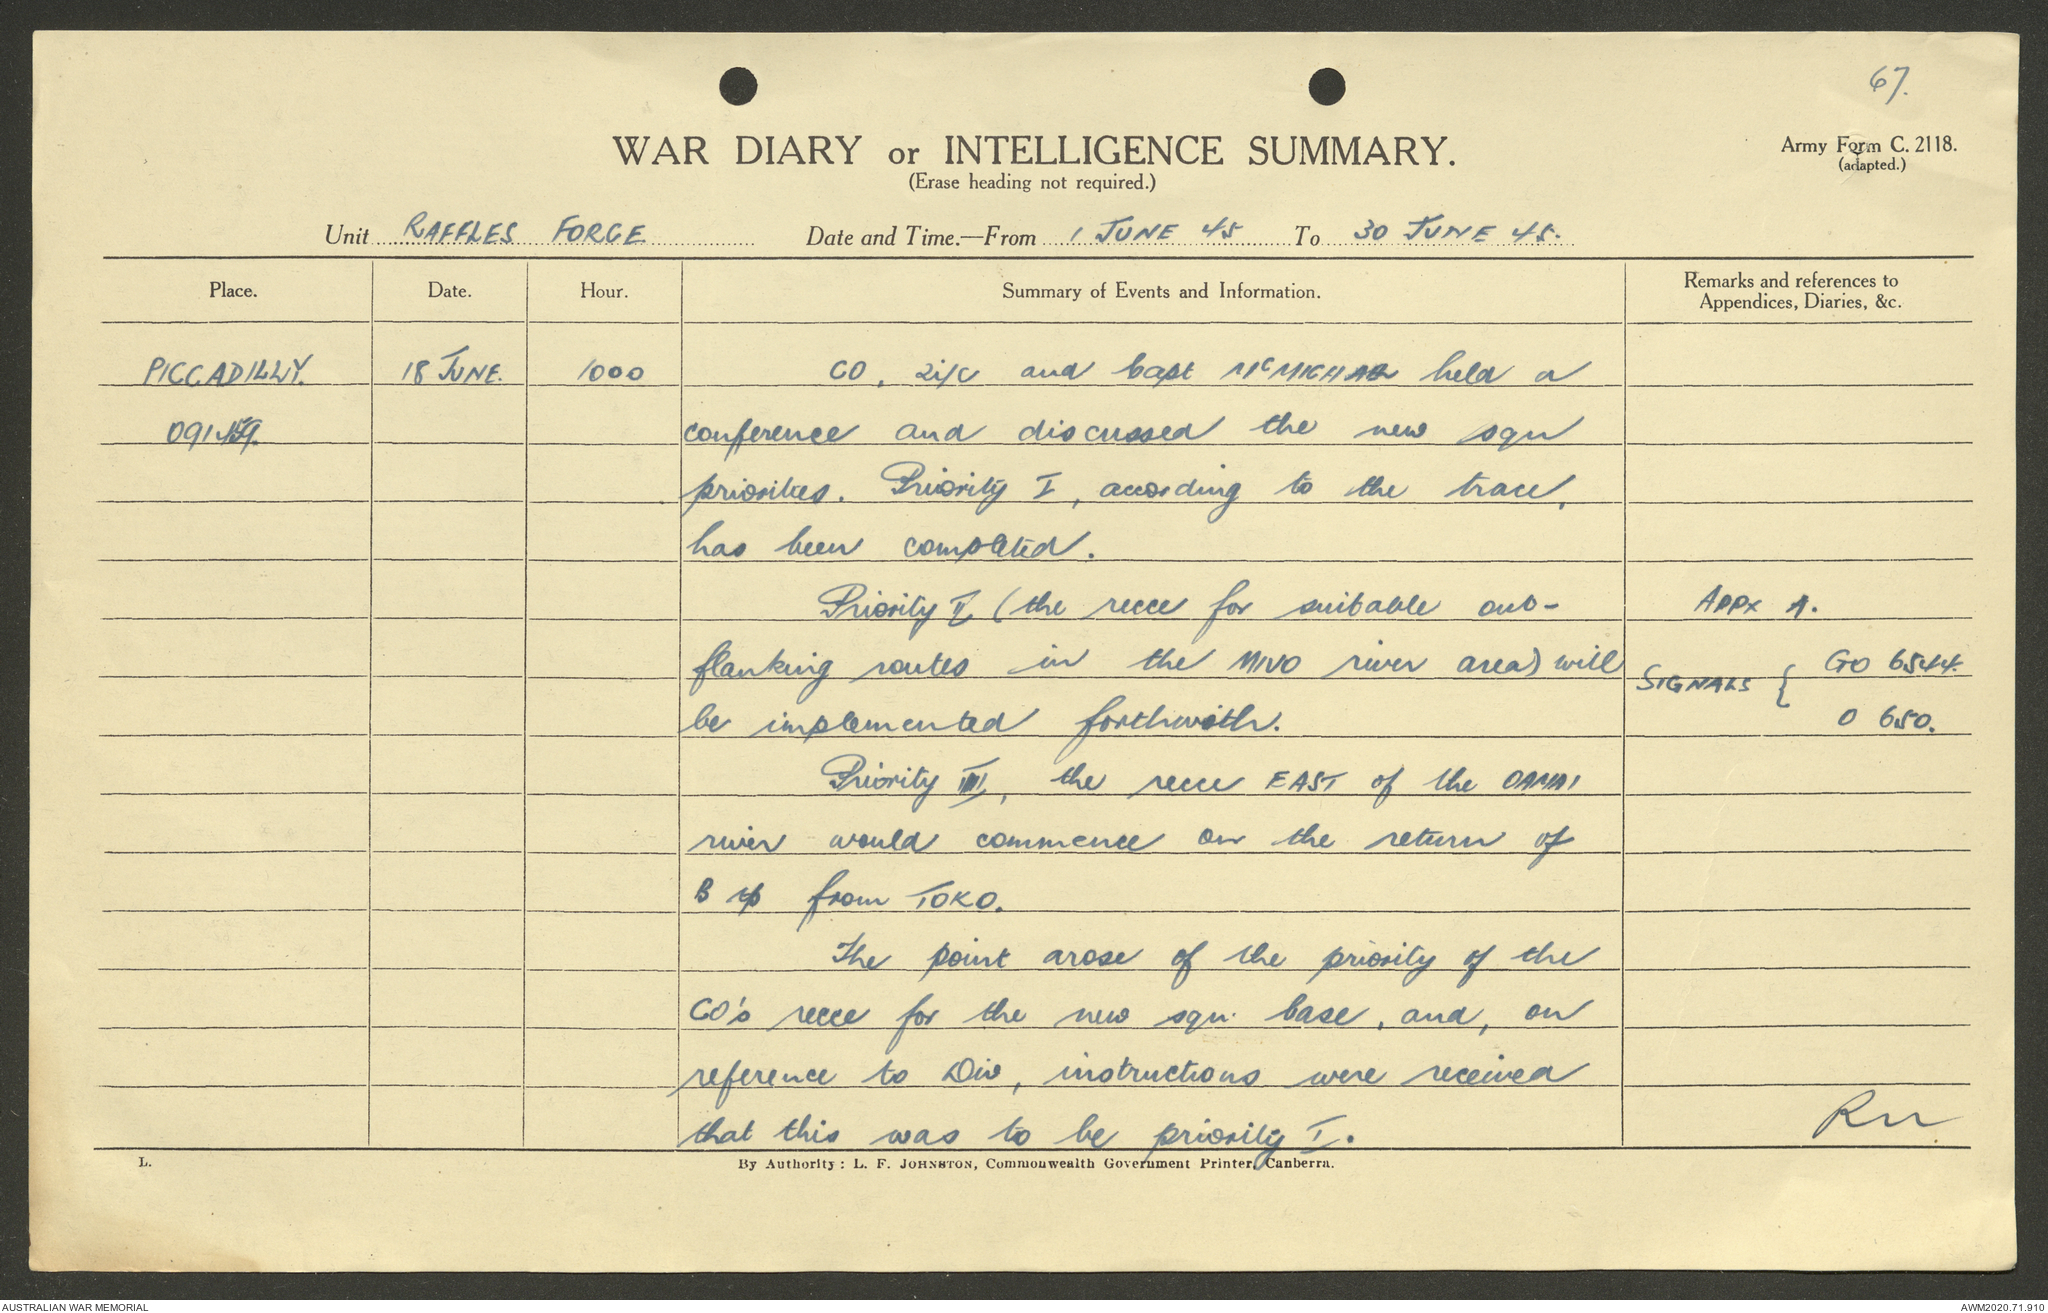 67.
WAR DIARY or INTELLIGENCE SUMMARY.
(Erase heading not required.)
Army Form C. 2118.
(adapted.)
Unit RAFFLES FORCE Date and Time.—From 1 JUNE 45 To 30 JUNE 45.
Place. Date. Hour. Summary of Events and Information. Remarks and references to
Appendices, Diaries, &c.
PICCADILLY. 18 JUNE. 1000 CO, 2i/c and Capt held a
conference and discussed the new sqn
priorities. Priority I, according to the trace,
has been completed.
Priority II (the recce for suitable out- APPX A.
flanking routes in the MIVO river area) will SIGNALS { GO 6544.
be implemented forthwith. O 650.
Priority III, the recce EAST of the OAMAI
river would commence on the return of
B tp from TOKO.
The point arose of the priority of the
CO's recce for the new sqn. base, and, on
reference to Div, instructions were received
that this was to be priority I.
L. By Authority: L. F. JOHNSTON, Commonwealth Government Printer, Canberra.
AUSTRALIAN WAR MEMORIAL AWM2020.71.910